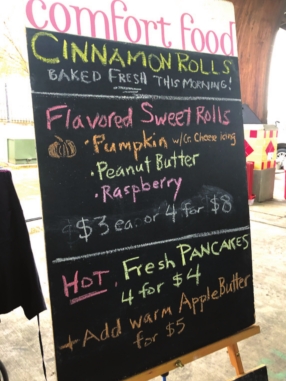 comfort food
CINNAMON ROLLS
BAKED FRESH THIS MORNING!
Flavored Sweet Rolls
• Pumpkin w/Cr. Cheese icing
• Peanut Butter
• Raspberry
$3 ea. or 4 for $8
HOT, Fresh PANCAKES
4 for $4
+ Add warm Apple Butter
for $5